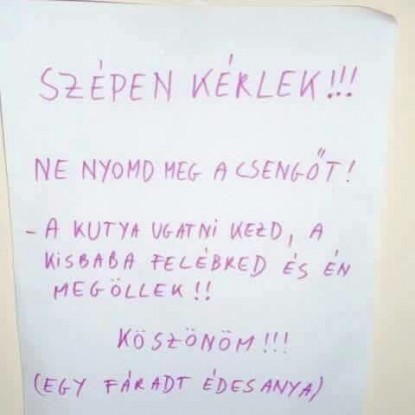 SZÉPEN KÉRLEK!!!
NE NYOMD MEG A CSENGŐT!
- A KUTYA UGATNI KEZD, A
KISBABA FELÉBRED ÉS ÉN
MEGÖLLEK!!
KÖSZÖNÖM!!!
(EGY FÁRADT ÉDESANYA)